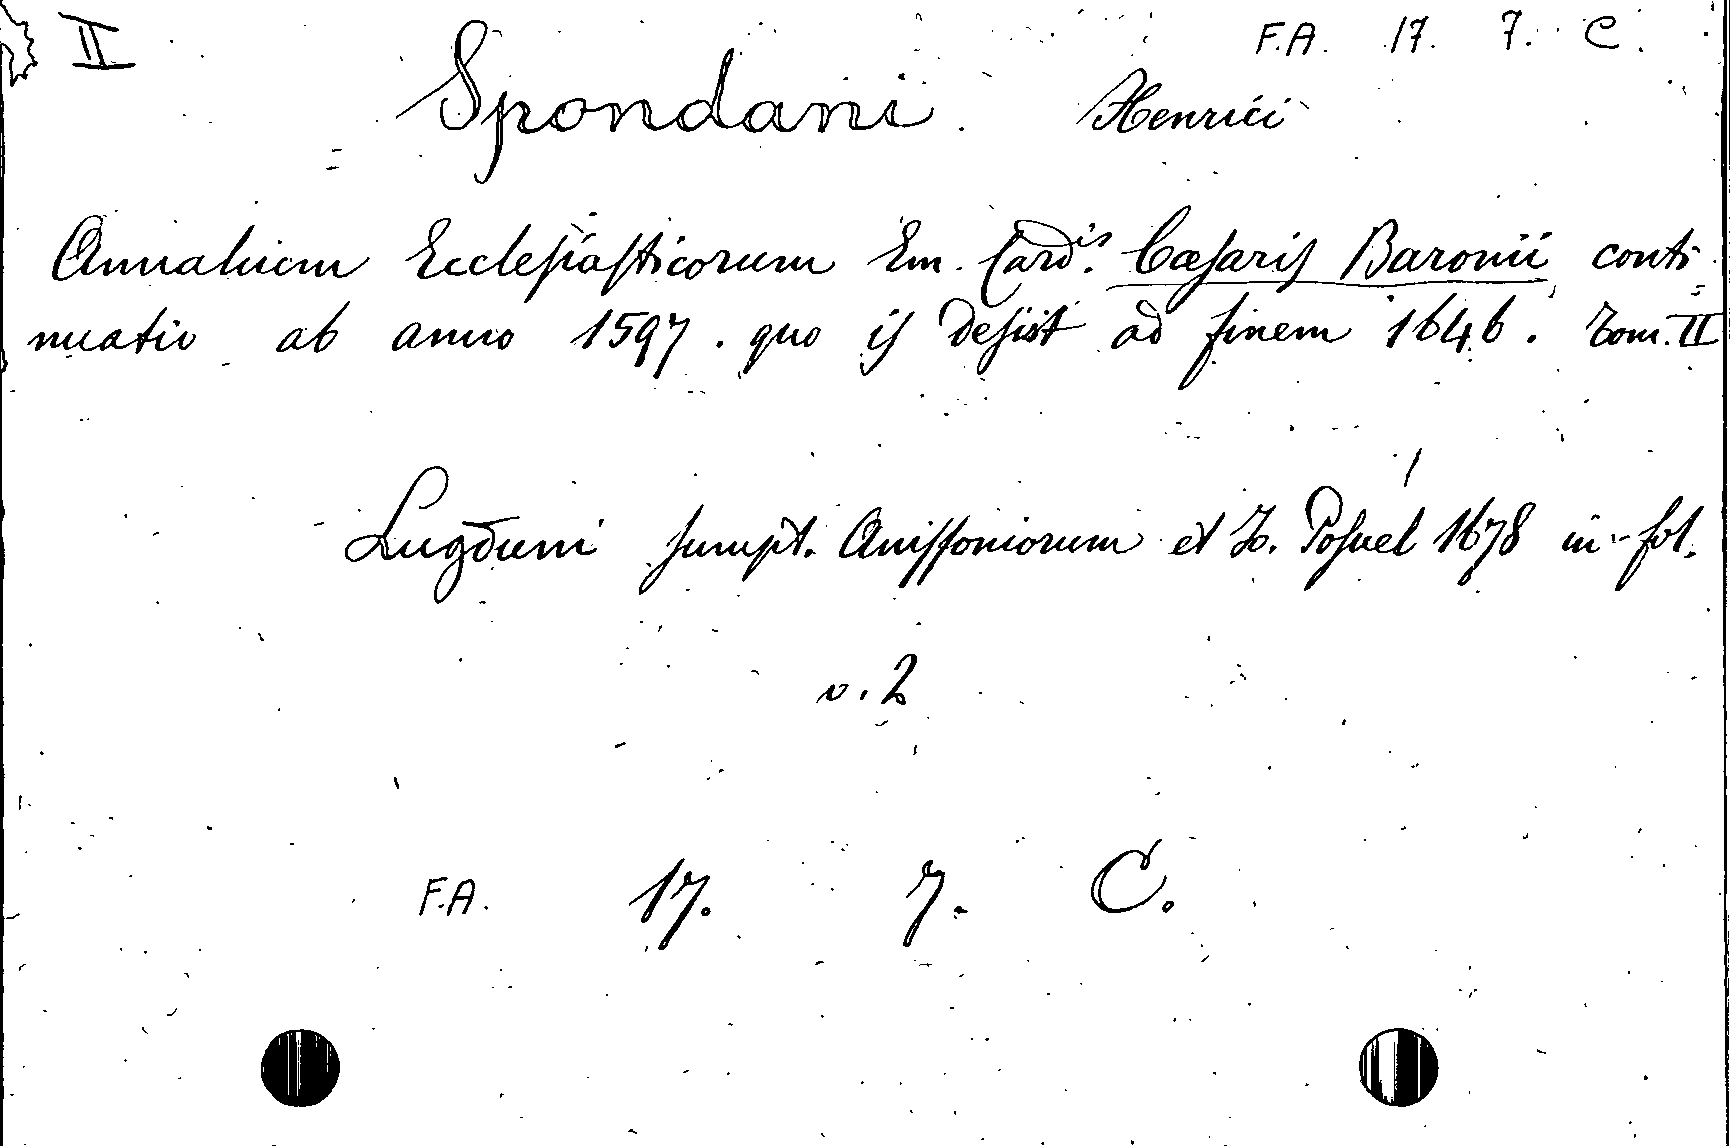 II F.A. 17. 7. C.
Spondani. Henrici
Annalium Ecclesiasticorum Em. Card.is Cæsaris Baronii conti
nuatio ab anno 1597. quo is desist ad finem 1646. Tom. II
Lugduni sumpt. Anissoniorum et J. Posuel 1678 in-fol.
v. 2
F.A. 17. 7. C.